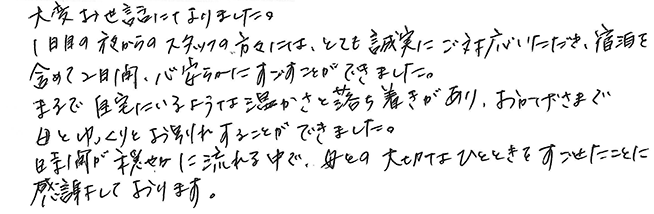 大変お世話になりました。
1日目の夜からのスタッフの方々には、とても誠実にご対応いただき、宿泊を
含めて2日間、心安らかにすごすことができました。
まるで自宅にいるような温かさと落ち着きがあり、おかげさまで
母とゆっくりとお別れすることができました。
時間が穏やかに流れる中で、母との大切なひとときをすごせたことに
感謝しております。